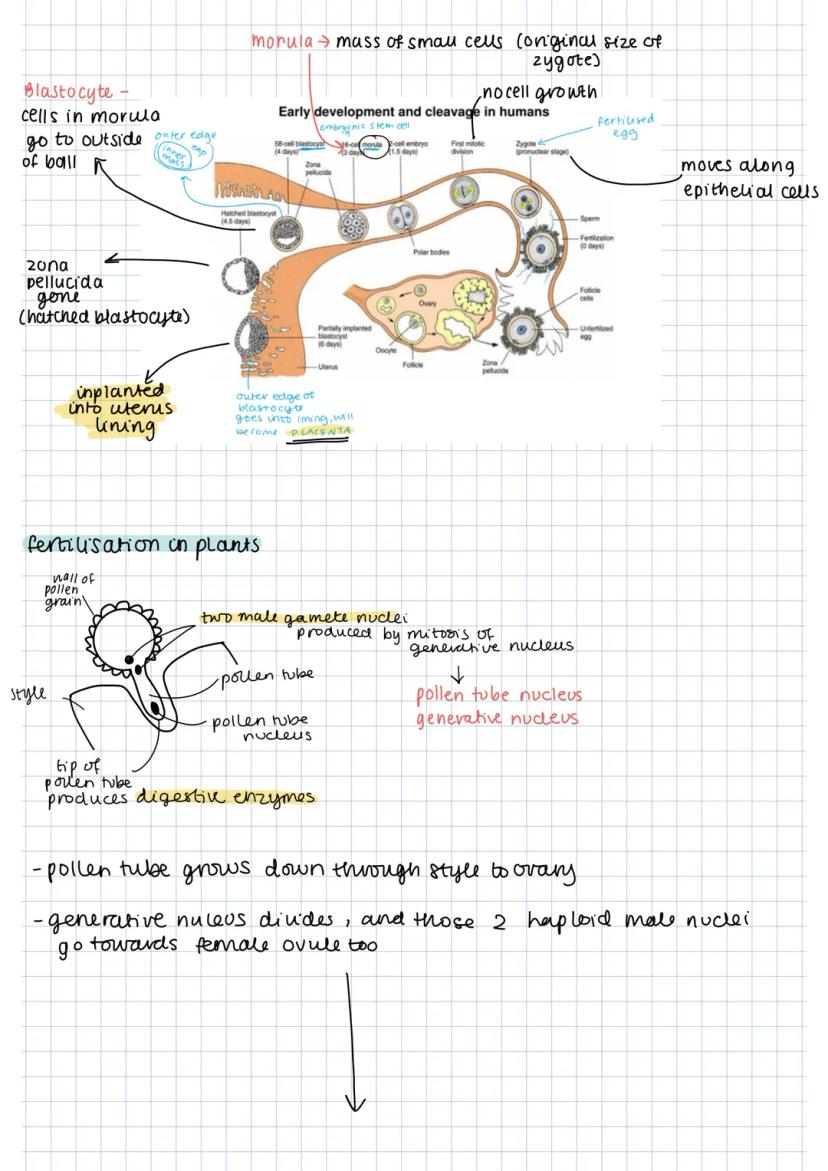 morula → mass of small cells (original size of
zygote)
Blastocyte -
cells in morula
go to outside
of ball
no cell growth
Early development and cleavage in humans
embryonic stem cell
fertilised
egg
outer edge
gap
inner
mass
58-cell blastocyst
(4 days)
16-cell morula
(3 days)
2-cell embryo
(1.5 days)
First mitotic
division
Zygote
(pronuclear stage)
Zona
pellucida
moves along
epithelial cells
Hatched blastocyst
(4.5 days)
Sperm
Fertilization
(0 days)
Polar bodies
zona
pellucida
gone
(hatched blastocyte)
Ovary
Follicle
cells
Partially implanted
blastocyst
(6 days)
Unfertilized
egg
Oocyte
Follicle
Zona
pellucida
Uterus
inplanted
into uterus
lining
outer edge of
blastocyte
goes into lining, will
become PLACENTA
fertilisation in plants
wall of
pollen
grain
two male gamete nuclei
produced by mitosis of
generative nucleus
pollen tube
pollen tube nucleus
generative nucleus
style
pollen tube
nucleus
tip of
pollen tube
produces digestive enzymes
- pollen tube grows down through style to ovary
- generative nuleus divides, and those 2 haploid male nuclei
go towards female ovule too